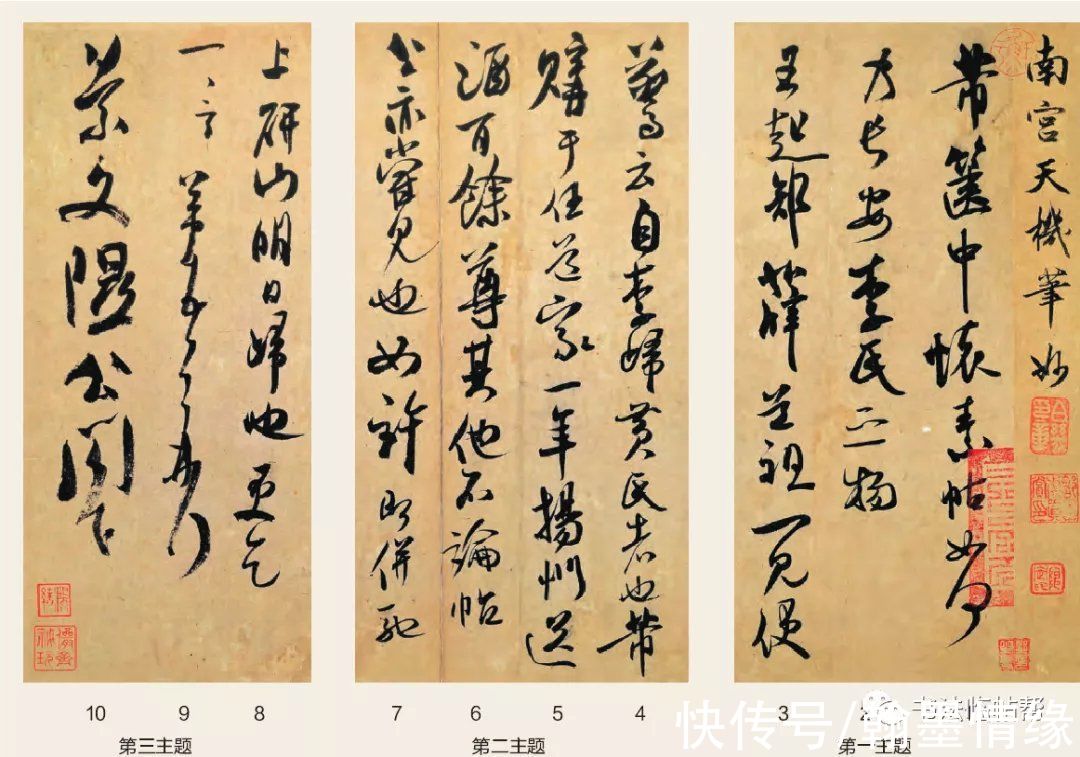 南宮天機筆妙
芾篋中懷素帖如何
乃長安李氏之物
王起部薛道祖一見便
驚云自李歸黃氏者也芾
購于任道家一年揚州送
酒百餘尊其他不論帖
公亦嘗見也如許即併馳
上研山明日歸也更乞
一言芾頓首再拜
景文隰公閤下
10 9 8 7 6 5 4 3 2
第三主题 第二主题 第一主题
书法临帖帮
快传号/翰墨情缘